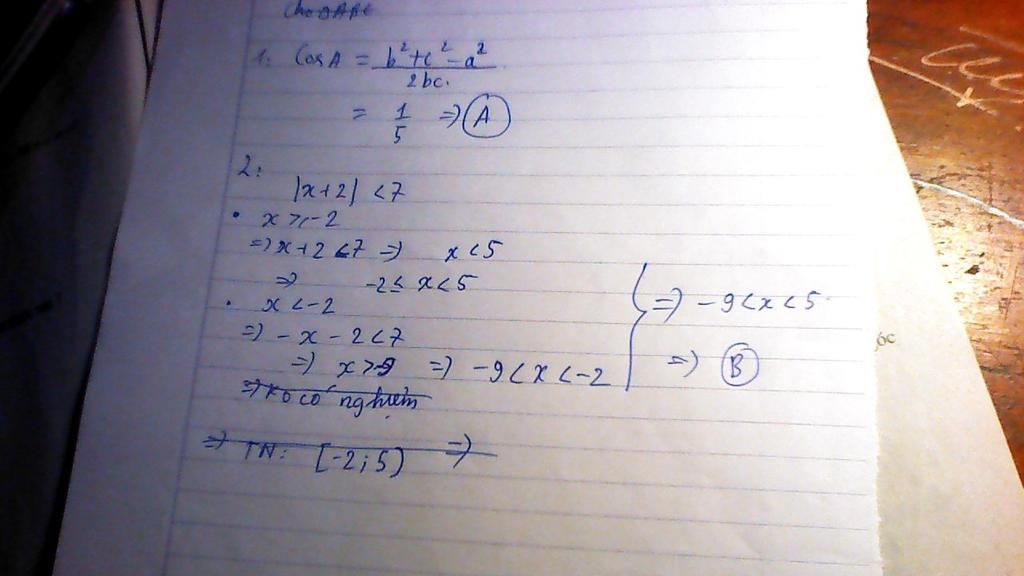 Cho ΔABC
1. Cos A = b²+c²-a² / 2bc.
= 1/5 => A
2:
|x+2| <7
• x ≥ -2
=> x+2 <7 => x <5
=> -2 ≤ x <5
• x < -2
=> -x - 2 <7
=> x > -9 => -9 < x < -2
=> -9 < x < 5
=> B
=> Ko có nghiệm
=> TN: [-2;5) =>